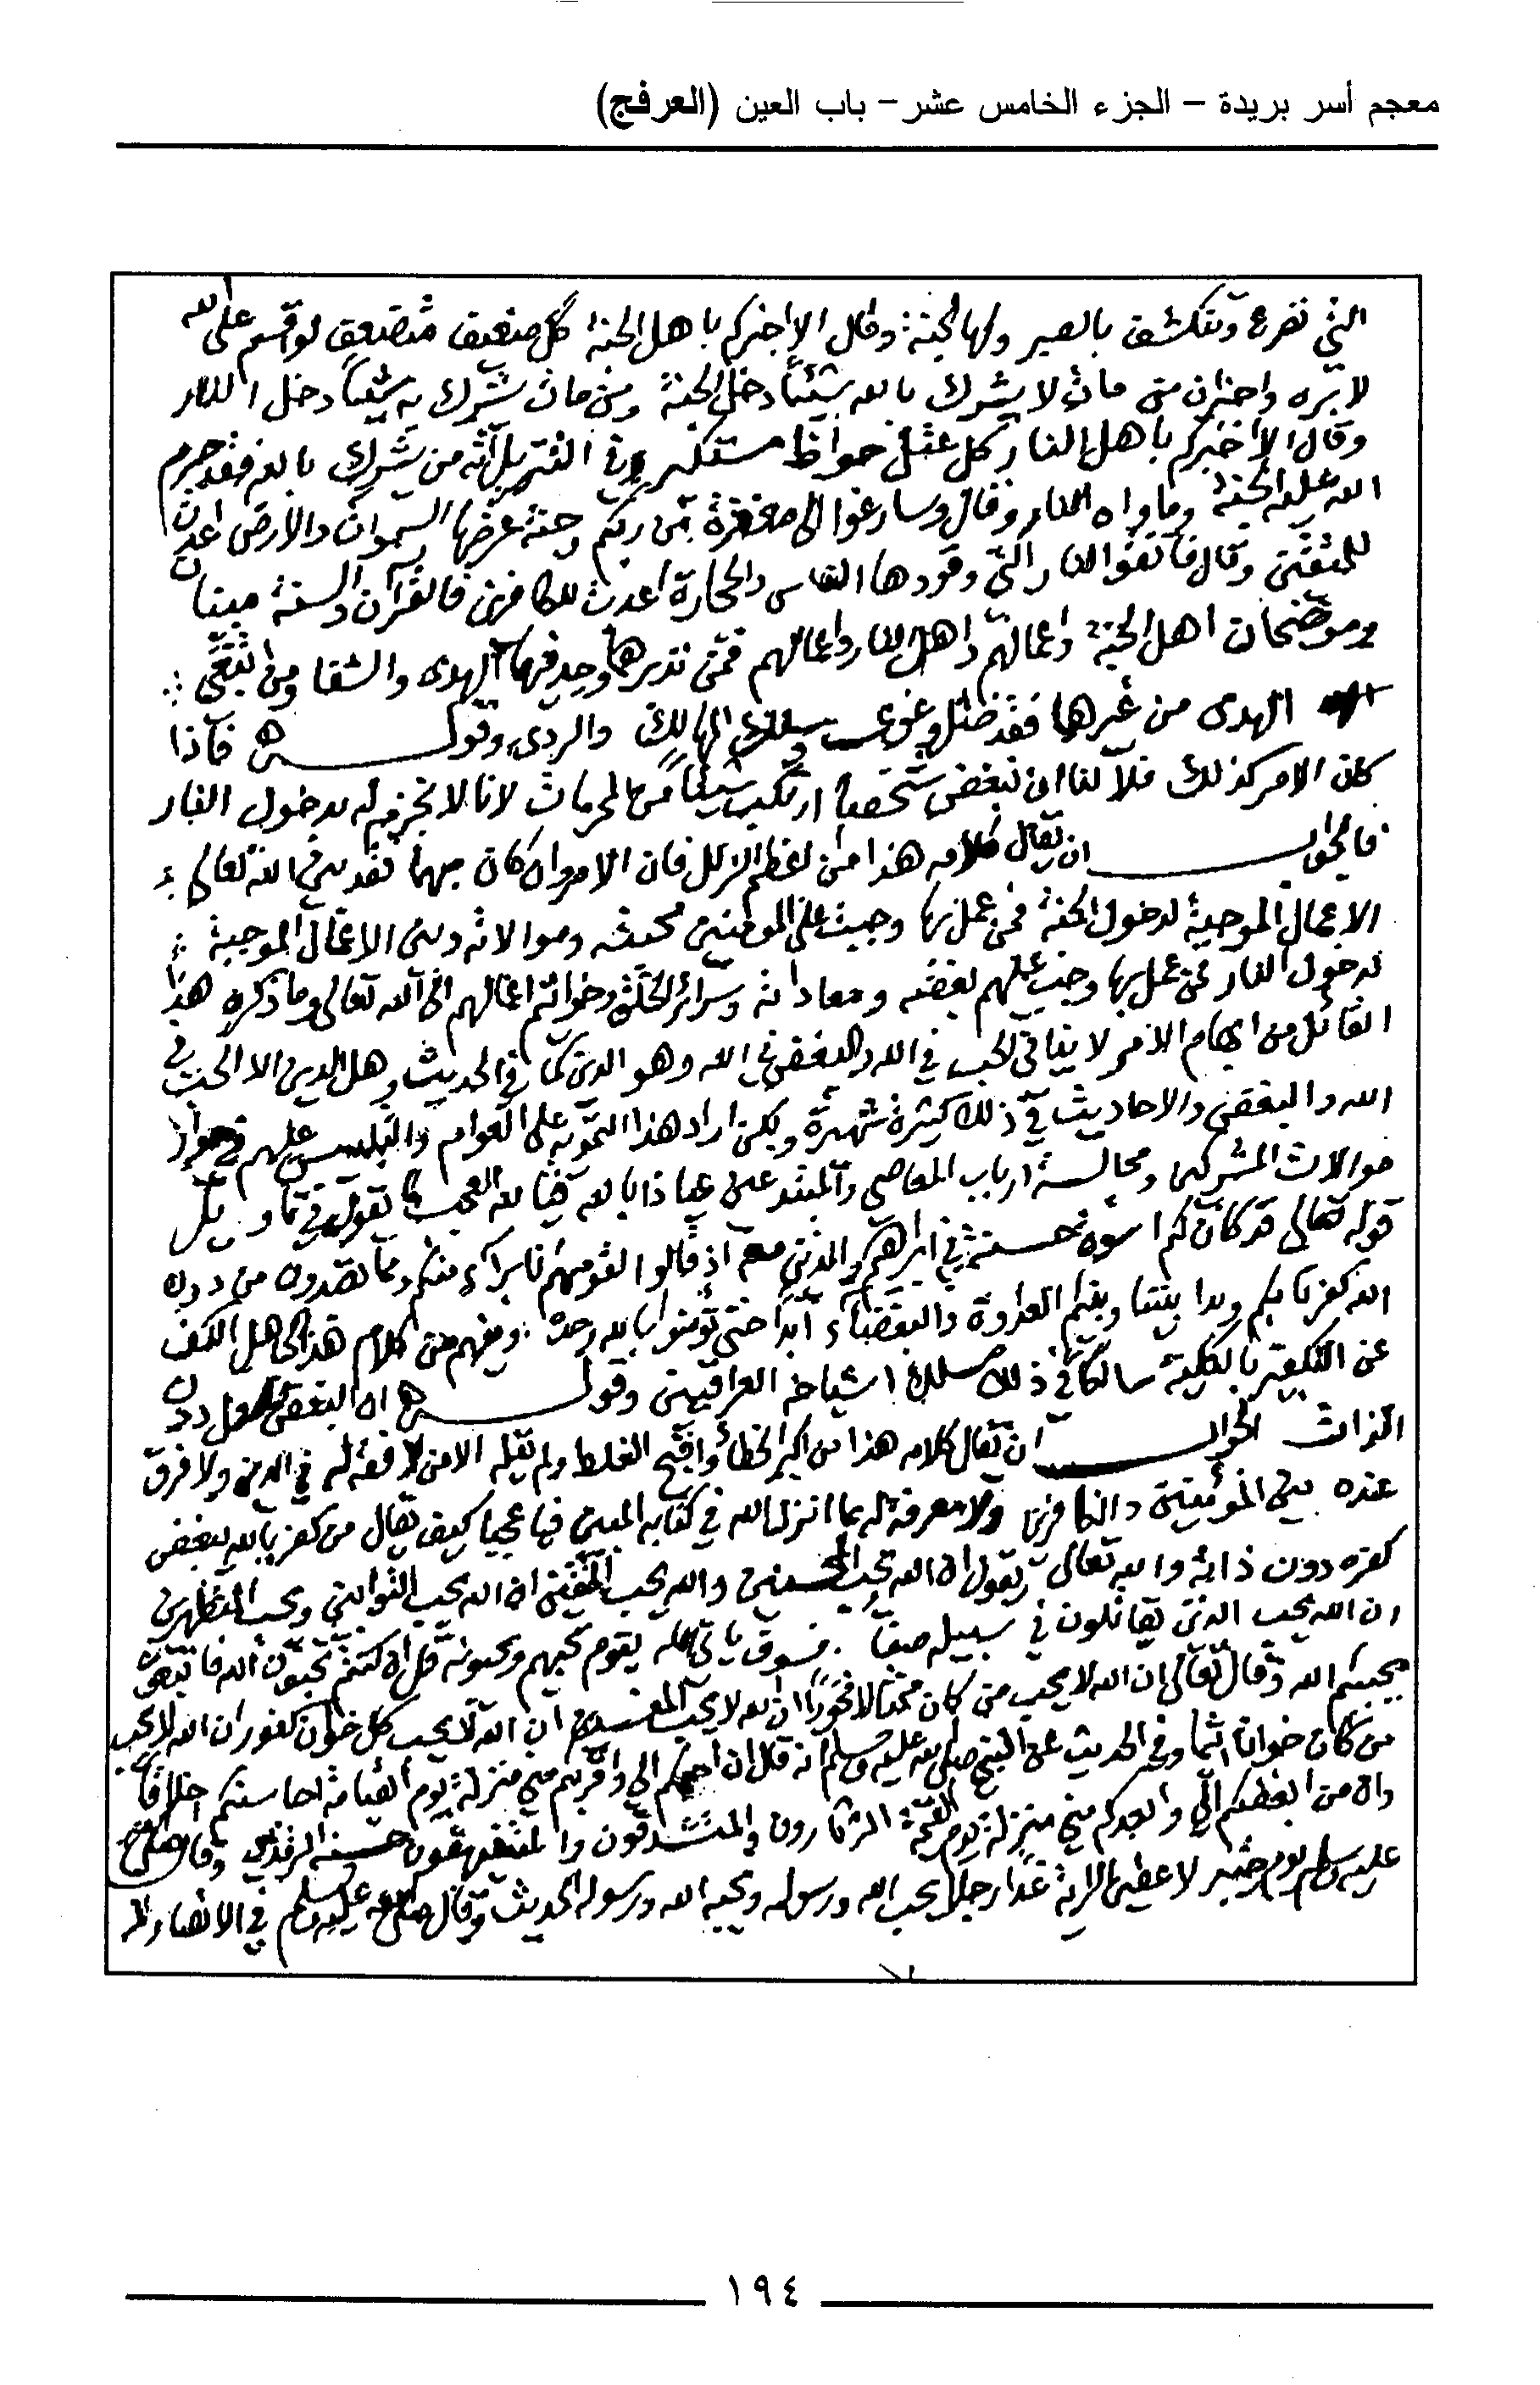 معجم أسر بريدة – الجزء الخامس عشر – باب العين (العرفج)
التي تصرع وتتكشف بالصبر ولها الجنة وقال الا اخبركم باهل الجنة كل ضعيف متضعف لو اقسم على الله
لابره واخبر ان من مات لا يشرك بالله شيئاً دخل الجنة ومن مات يشرك به شيئاً دخل النار
وقال الا اخبركم باهل النار كل عتل جواظ مستكبر وفي التنزيل انه من يشرك بالله فقد حرم
الله عليه الجنة وماواه النار وقال وسارعوا الى مغفرة من ربكم وجنة عرضها السموات والارض اعدت
للمتقين وقال فاتقوا النار التي وقودها الناس والحجارة اعدت للكافرين فالقرآن والسنة مبينان
وموضحان اهل الجنة واعمالهم واهل النار واعمالهم فمن تدبرهما وجد فيهما الهدى والشفا ومن ابتغى
الهدى من غيرهما فقد ضل وغوى وسلك المهالك والردى وقوله فاذا
كان الامر كذلك فلا لنا ان نبغض شخصاً ارتكب شيئاً من المحرمات لانا لا نجزم له بدخول النار
فالجواب ان يقال كلامه هذا من اعظم الزلل فان الامر وان كان مبهما فقد بين الله تعالى
الاعمال الموجبة لدخول الجنة فمن عمل بها وجبت على المؤمنين محبته وموالاته وبين الاعمال الموجبة
لدخول النار فمن عمل بها وجب عليهم بغضه ومعاداته وسرائر الخلق وخواتم اعمالهم الى الله تعالى وما ذكره هذا
القائل من ابهام الامر لا ينافي الحب في الله والبغض في الله وهو الدين كما في الحديث وهل الدين الا الحب في
الله والبغض والاحاديث في ذلك كثيرة شهيرة ولكن اراد هذا التمويه على العوام والتلبيس عليهم في جواز
موالات المشركين ومجالسة ارباب المعاصي والمبتدعين عياذا بالله فيا لله العجب ما يقول في تاويل
قوله تعالى قد كانت لكم اسوة حسنة في ابراهيم والذين معه اذ قالوا لقومهم انا براء منكم ومما تعبدون من دون
الله كفرنا بكم وبدا بيننا وبينكم العداوة والبغضاء ابداً حتى تؤمنوا بالله وحده ويفهم من كلام هذا الجاهل الكف
عن التكفير بالكلية سالكا في ذلك مسلك اشياخه العراقيين وقوله ان البغض للعمل دون
الذات الجواب ان يقال كلامه هذا من اكبر الخطأ واقبح الغلط ولم يقله الا من لا فقه له في الدين ولا فرق
عنده بين المؤمنين والكافرين ولا معرفة له بما انزل الله في كتابه المبين فيا عجبا كيف يقال من كفر بالله يبغض
كفره دون ذاته والله تعالى يقول ان الله يحب المحسنين والله يحب المتقين ان الله يحب التوابين ويحب المتطهرين
ان الله يحب الذين يقاتلون في سبيله صفا فسوف ياتي الله بقوم يحبهم ويحبونه قل ان كنتم تحبون الله فاتبعوني
يحببكم الله وقال تعالى ان الله لا يحب من كان مختالا فخوراً ان الله لا يحب المفسدين ان الله لا يحب كل خوان كفور ان الله لا يحب
من كان خوانا اثيما وفي الحديث عن النبي صلى الله عليه وسلم انه قال ان احبكم الي واقربكم مني منزلة يوم القيامة احاسنكم اخلاقاً
وان من ابغضكم الي وابعدكم مني منزلة يوم القيمة الثرثارون والمتشدقون والمتفيهقون حسنه الترمذي وقال صلى الله
عليه وسلم يوم خيبر لاعطين الراية غدا رجلا يحب الله ورسوله ويحبه الله ورسوله الحديث وقال صلى الله عليه وسلم في الانصار
١٩٤